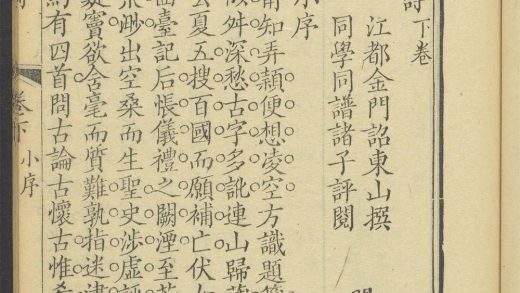 詩下卷
江都金門詔東山撰
同學同譜諸子評閱
小序
甫知弄頴便想凌空方識題
舛深愁古字多訛連山歸
夏五搜百國而願補亡伏
臺記后悵儀禮之闕湮至
渺出空桑而生聖史涉虛
竇欲含毫而質難孰指迷津
有四首問古論古懷古惟
卷下
小序